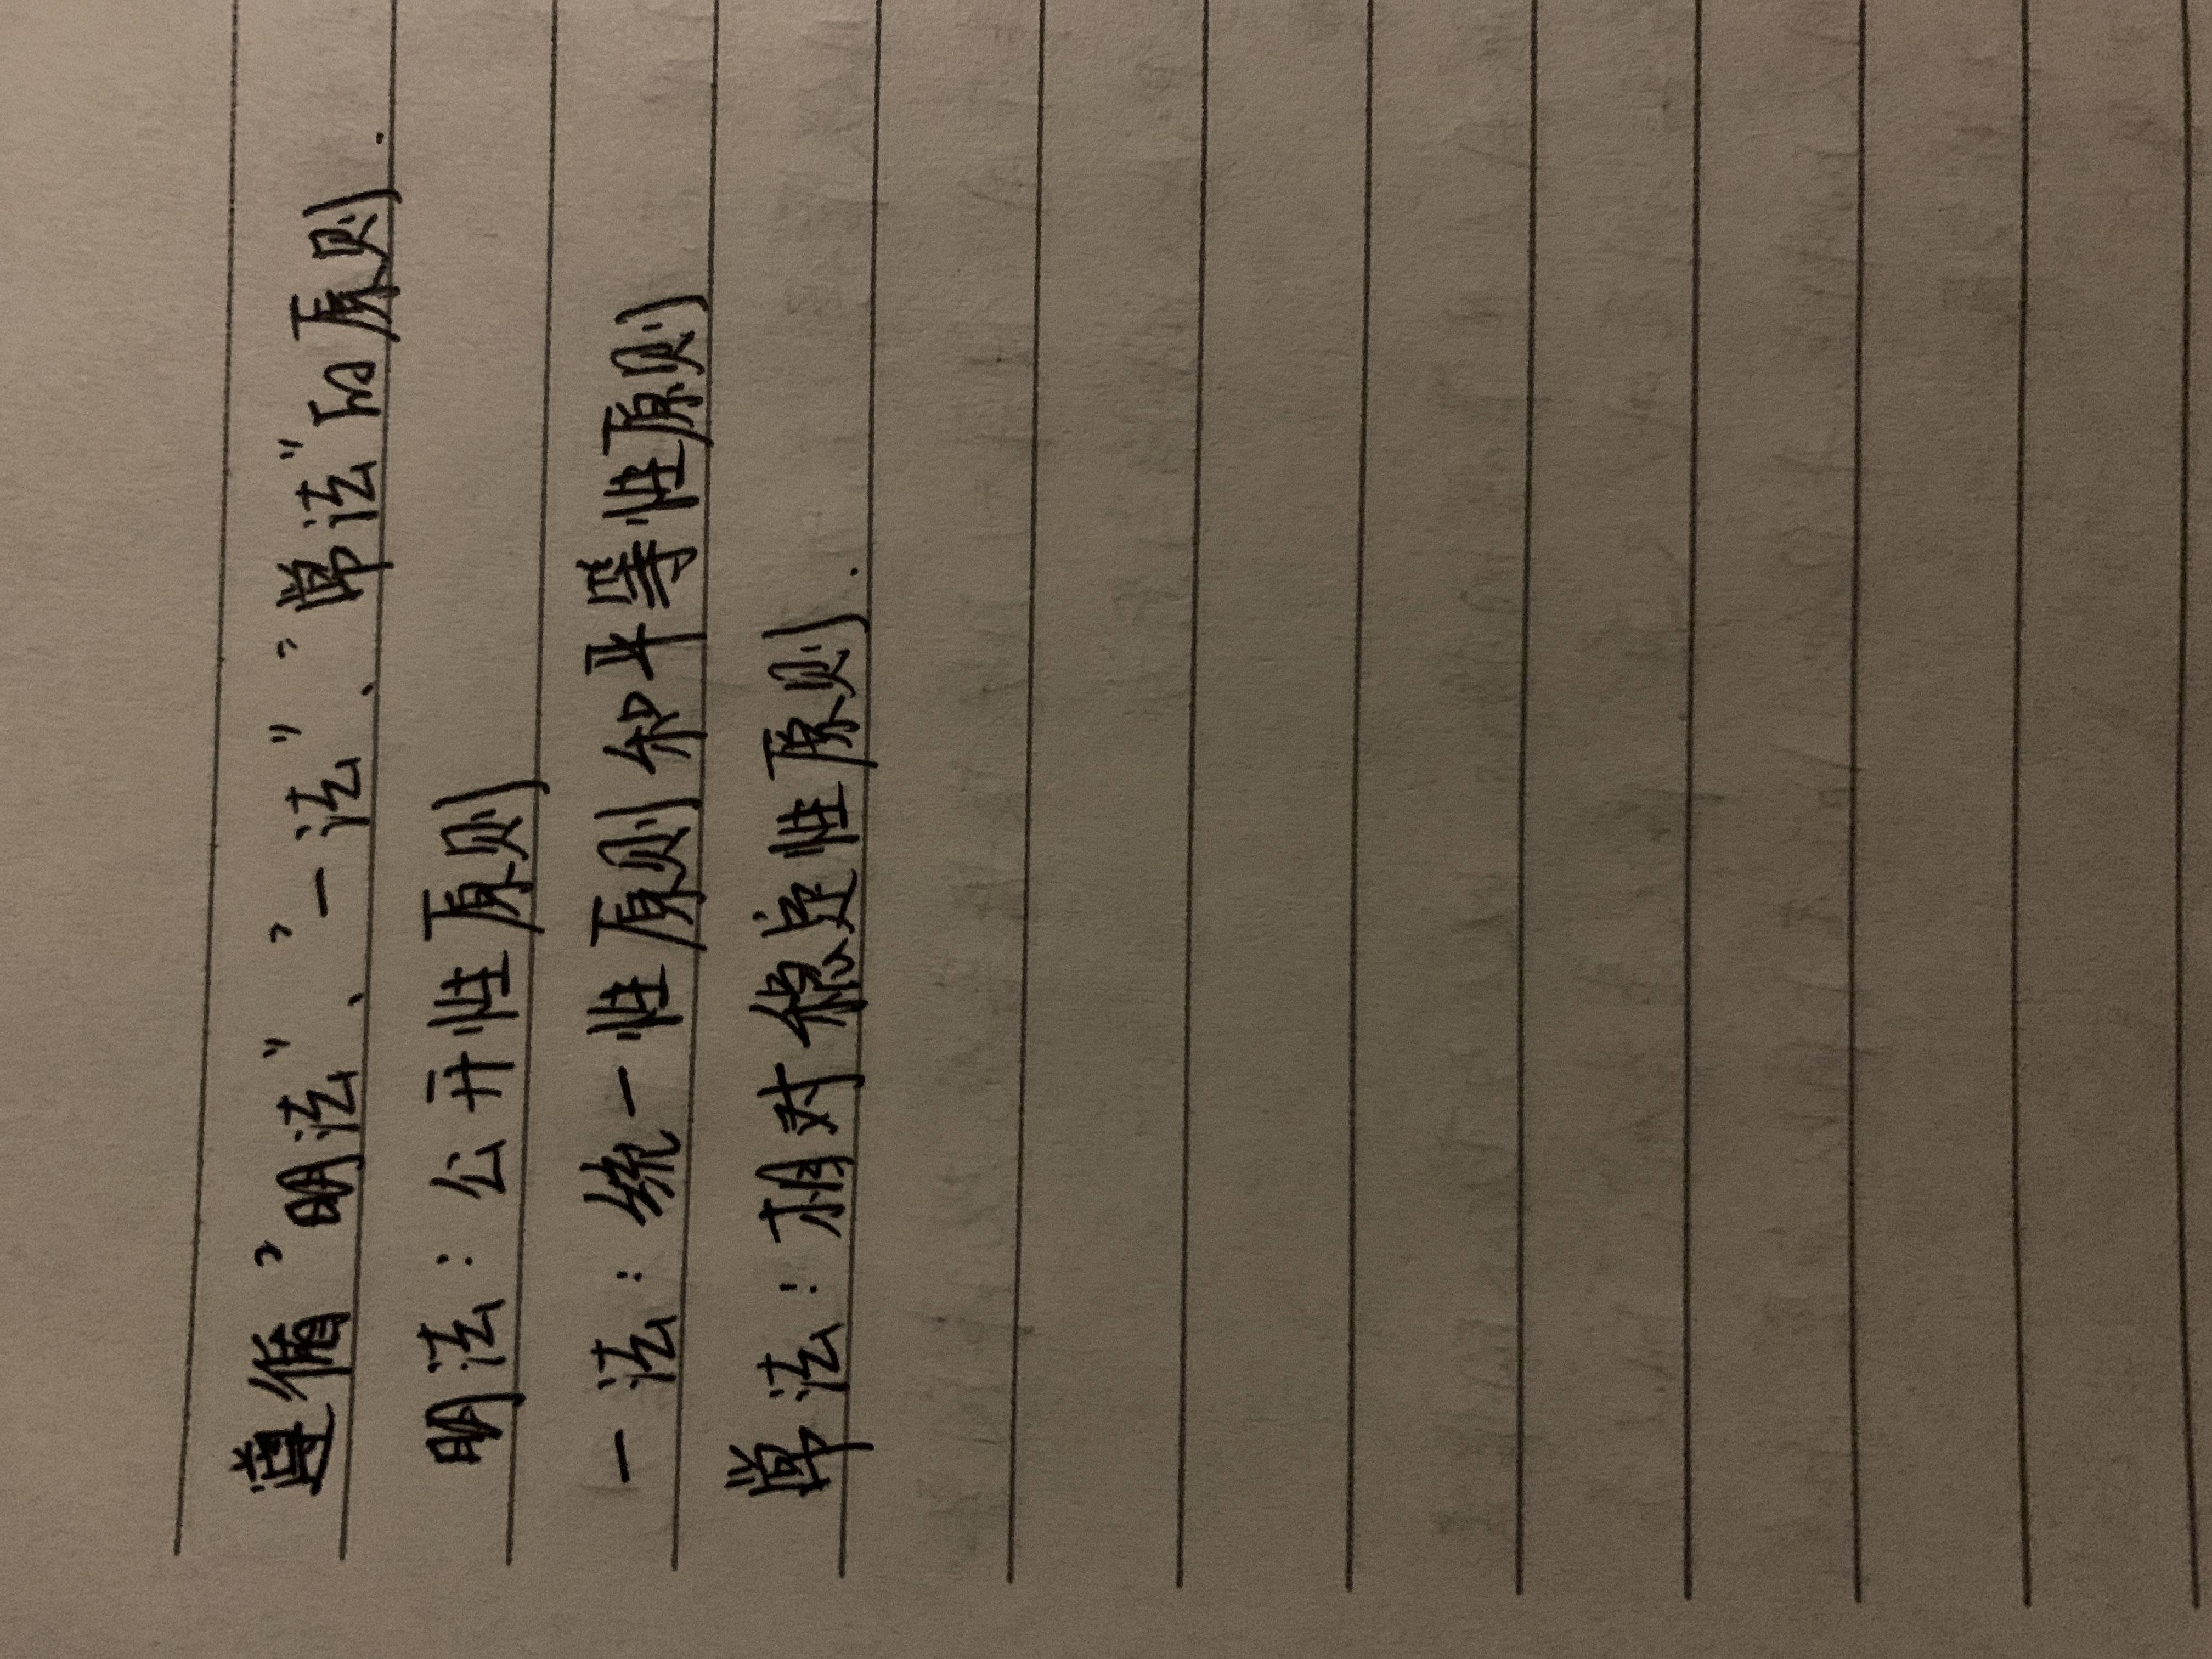 遵循"明法"、"一法"、"常法"的原则.
明法:公开性原则
一法:统一性原则和平等性原则
常法:相对稳定性原则.